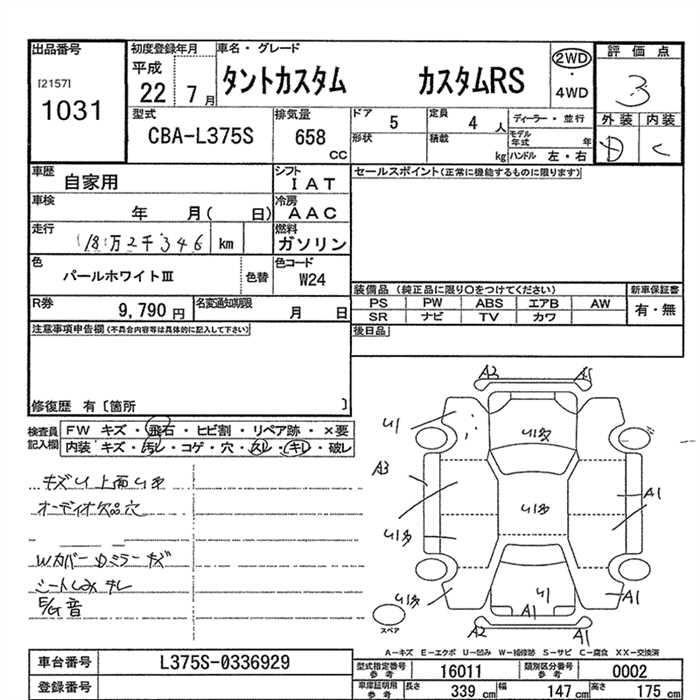 出品番号
[2157]
1031
初度登録年月
平成
22 7月
車名・グレード
タントカスタム カスタムRS
2WD
・
4WD
評価点
3
外装 内装
D C
型式
CBA-L375S
排気量
658
cc
ドア 5
形状
定員 4 人
積載 kg
ディーラー・並行
モデル年式 年
ハンドル 左・右
車歴
自家用
シフト
IAT
セールスポイント(正常に機能するものに限ります)
車検
年 月( 日)
冷房
AAC
走行
18万2千346 km
燃料
ガソリン
色
パールホワイトⅢ
色替
色コード
W24
R券
9,790円
名変通知期限
月 日
装備品(純正品に限り○をつけてください)
PS PW ABS エアB AW
SR ナビ TV カワ
新車保証書
有・無
注意事項申告欄(不具合内容等は具体的に記入して下さい)
後日品
修復歴 有〔箇所 〕
検査員記入欄
FW キズ・飛石・ヒビ割・リペア跡・×要
内装 キズ・汚レ・コゲ・穴・スレ・キレ・破レ
オーディオ欠品穴
E/G音
A2
A3
A1
U1
スペア
A-キズ E-エクボ U-凹み W-補修跡 S-サビ C-腐食 XX-交換済
車台番号
L375S-0336929
登録番号
型式指定番号 参考
16011
類別区分番号 参考
0002
車庫証明用 参考
長さ 339 cm
幅 147 cm
高さ 175 cm